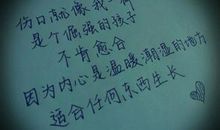 伤口就像我一样
是个倔强的孩子
不肯愈合
因为内心是温暖潮湿的地方
适合任何东西生长